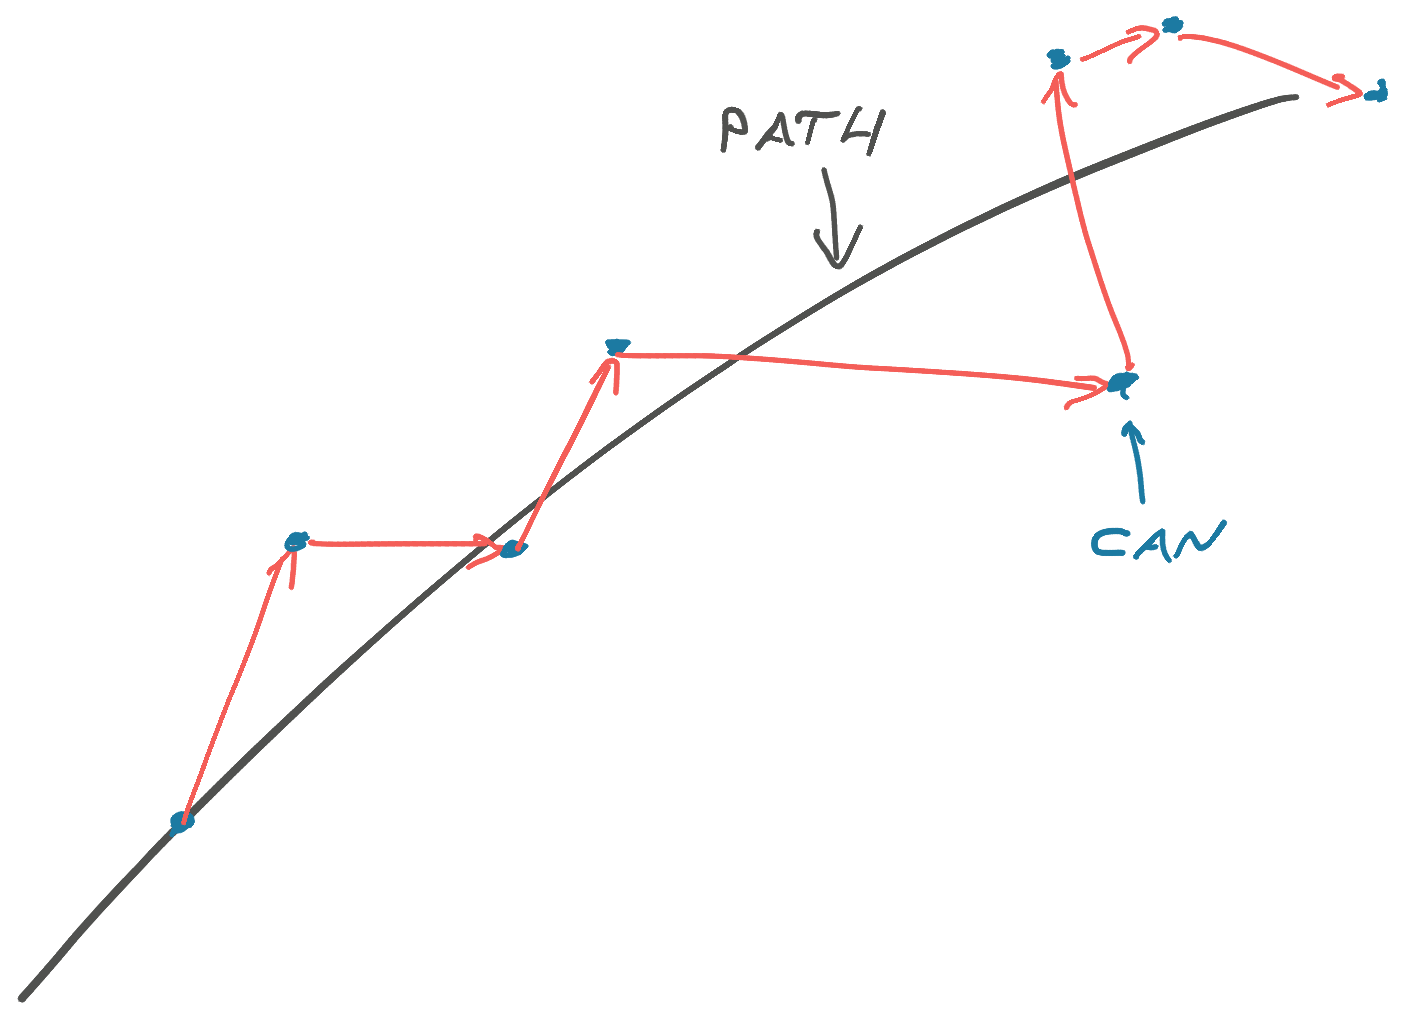 PATH
CAN